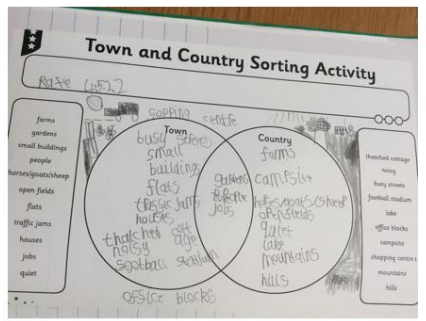 Town and Country Sorting Activity
farms
gardens
small buildings
people
horses/goats/sheep
open fields
flats
traffic jams
houses
jobs
quiet
sopping centre
Town
busy
small
buildings
flats
jams
houses
thatched
noisy
office blocks
gardens
jobs
Country
farms
campsite
openfields
quiet
lake
mountains
hills
thatched cottage
noisy
busy streets
football stadium
lake
office blocks
campsite
shopping centre
mountains
hills